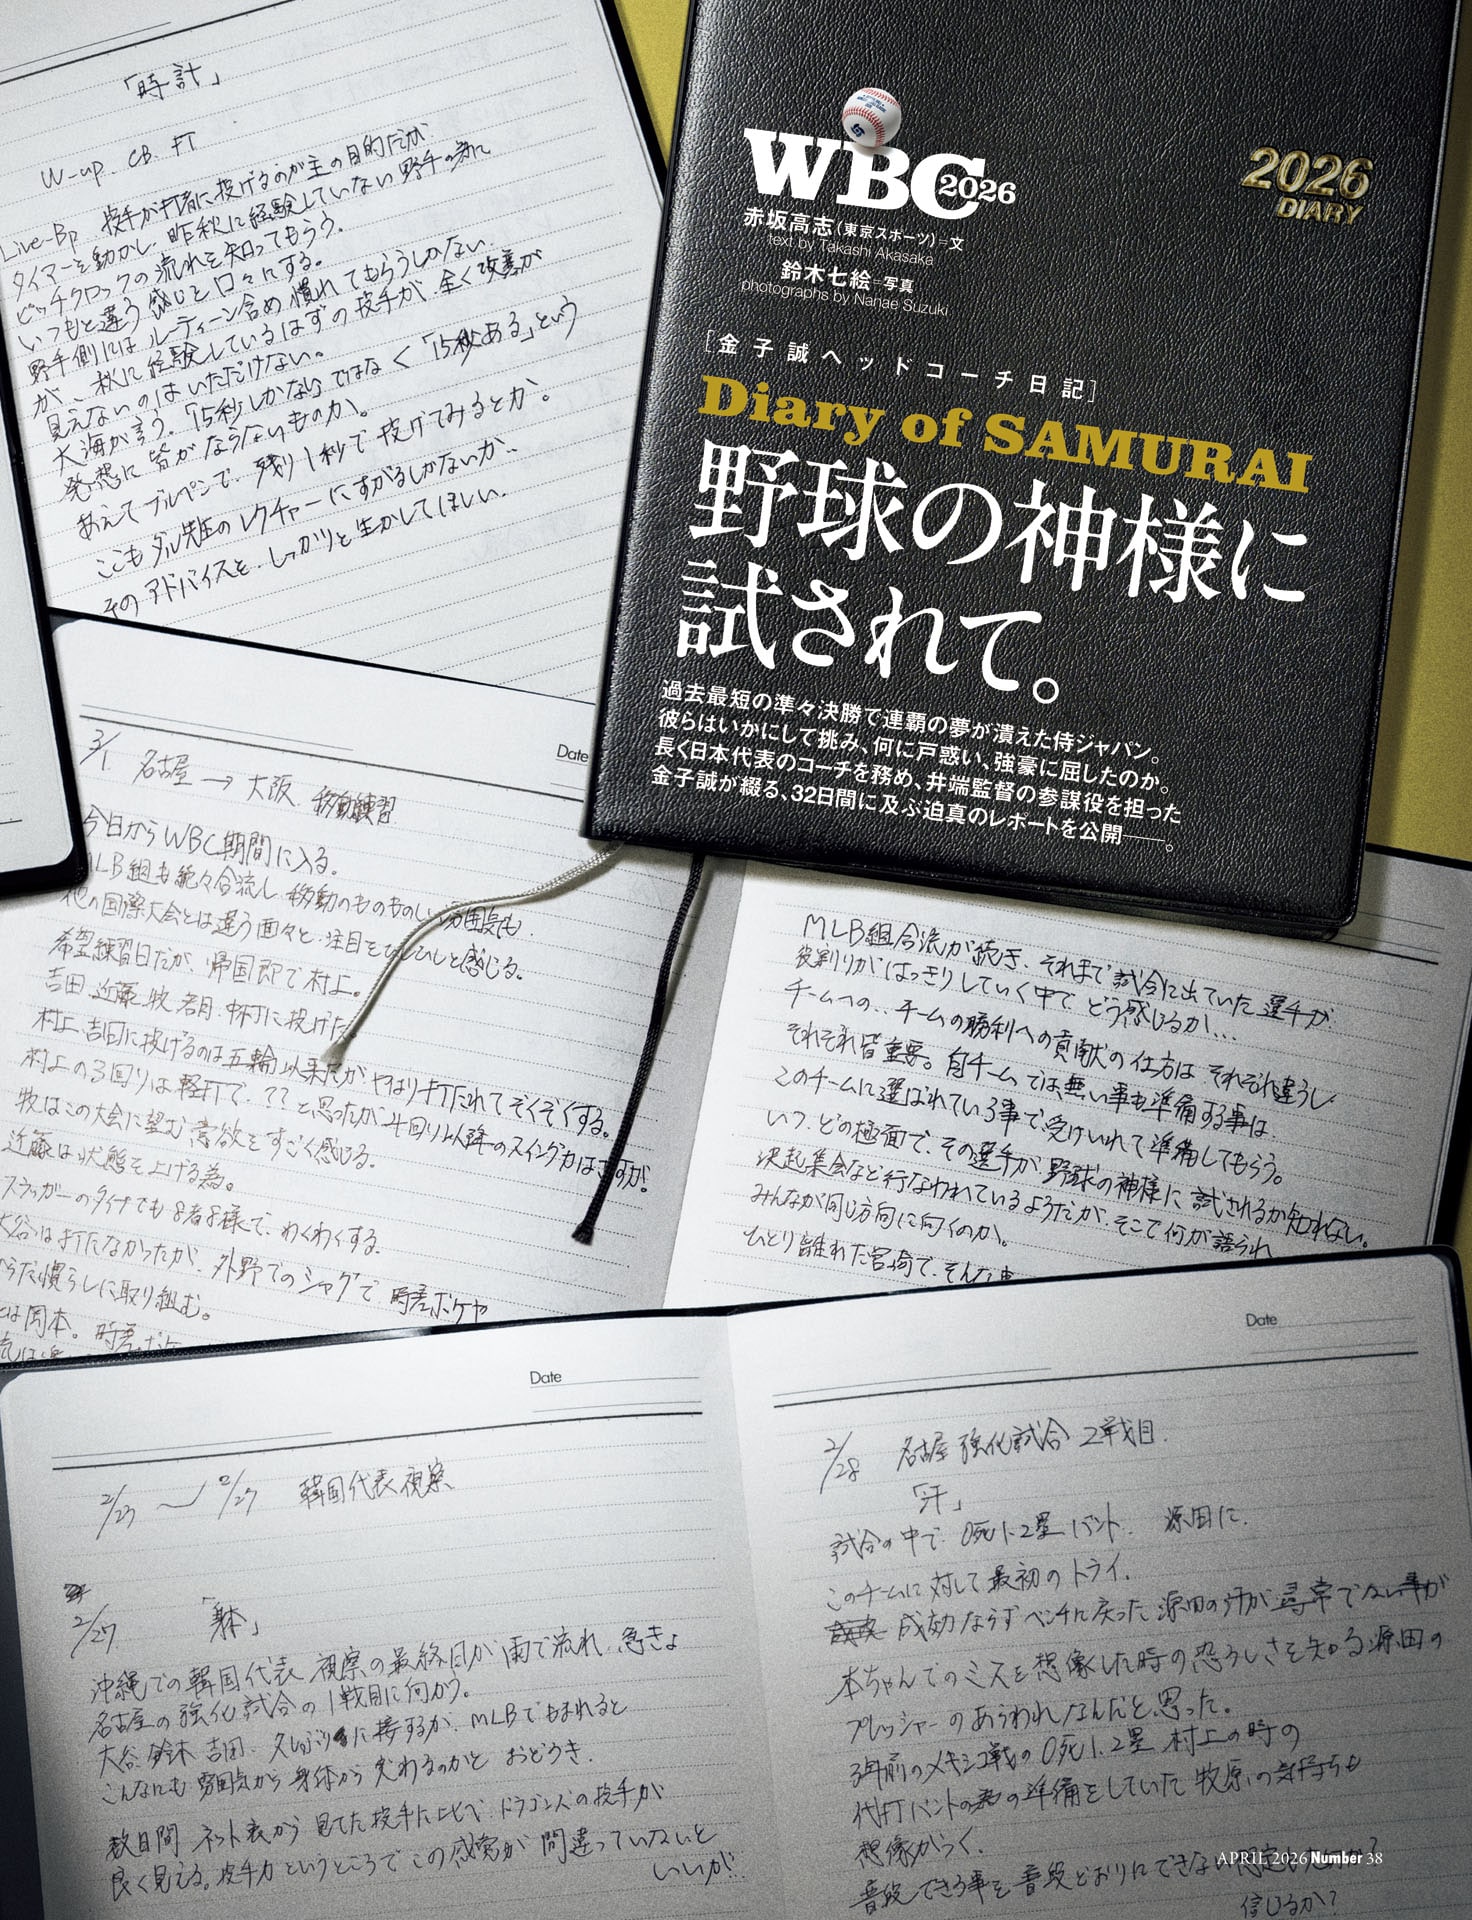 「時計」
W-up. CB. FT
Live-Bp 投手が打者に投げるのが主の目的だが
タイマーを動かし、昨秋に経験していない野手の為に
ピッチクロックの流れを知ってもらう。
いつもと違う感じと口々にする。
野手側にはルーティーン含め慣れてもらうしかない
が、秋に経験しているはずの投手が、全く改善が
見えないのはいただけない。
大海が言う。「15秒しかない」ではなく「15秒ある」という
発想に皆がならないものか。
あえてブルペンで、残り1秒で投げてみるとか。
ここもダル先生のレクチャーにすがるしかないか、、
そのアドバイスを、しっかりと生かしてほしい。
WBC 2026
2026
DIARY
赤坂高志(東京スポーツ)=文
text by Takashi Akasaka
鈴木七絵=写真
photographs by Nanae Suzuki
[金子誠ヘッドコーチ日記]
Diary of SAMURAI
野球の神様に
試されて。
過去最短の準々決勝で連覇の夢が潰えた侍ジャパン。
彼らはいかにして挑み、何に戸惑い、強豪に屈したのか。
長く日本代表のコーチを務め、井端監督の参謀役を担った
金子誠が綴る、32日間に及ぶ迫真のレポートを公開——。
Date
3/1 名古屋→大阪 移動練習
今日からWBC期間に入る。
MLB組も続々合流し、移動のものものしい
他の国際大会とは違う面々と、注目をひしひしと感じる。
希望練習日だが、帰国即で村上。
吉田、近藤、牧、若月、中村に投げた
村上、吉田に投げるのは五輪以来だがやはり打たれてぞくぞくする。
村上の3回りは軽打で、??と思ったが4回り以降のスイング力はさすが!
牧はこの大会に望む意欲をすごく感じる。
近藤は状態を上げる為。
スラッガーのタイプでも8者8様で、わくわくする。
大谷は打たなかったが、外野でのシャグで、時差ボケや
からだ慣らしに取り組む。
は岡本。時差ボケ
MLB組合流が続き、それまで試合に出ていた選手が
役割りがはっきりしていく中で、どう感じるか、、
チームへの、、チームの勝利への貢献の仕方はそれぞれ違うし
それぞれ皆重要。自チームでは無い事も準備する事は
このチームに選ばれている事で、受けいれて準備してもらう。
いつ、どの極面で、その選手が野球の神様に試されるか知れない。
決起集会など行なわれているようだが、そこで何が語られ
みんなが同じ方向に向くのか。
ひとり離れた宮崎で、そんな
Date
2/23 〜 2/27 韓国代表視察
2/27 「身体」
沖縄での韓国代表視察の最終日が雨で流れ、急きょ
名古屋の強化試合の1戦目に向かう。
大谷、鈴木、吉田、久しぶりに接するが、MLBでもまれると
こんなにも雰囲気から身体から変わるのかと、おどろき。
数日間ネット裏から見てた投手に比べ、ドラゴンズの投手が
良く見える。投手力というところでこの感覚が間違っていないと
いいが!
Date
2/28 名古屋強化試合 2戦目
「汗」
試合の中で、0死1.2塁バント、源田に。
このチームに対して最初のトライ。
成功ならずベンチに戻った源田の汗が尋常でない事が
本ちゃんでのミスを想像した時の恐ろしさを知る源田の
プレッシャーのあらわれなんだと思った。
3年前のメキシコ戦の0死1.2塁、村上の時の
代打バントの為の準備をしていた牧原の気持ちも
想像がつく。
普段できる事を普段どおりにできない
信じるか?
APRIL 2026 Number 38